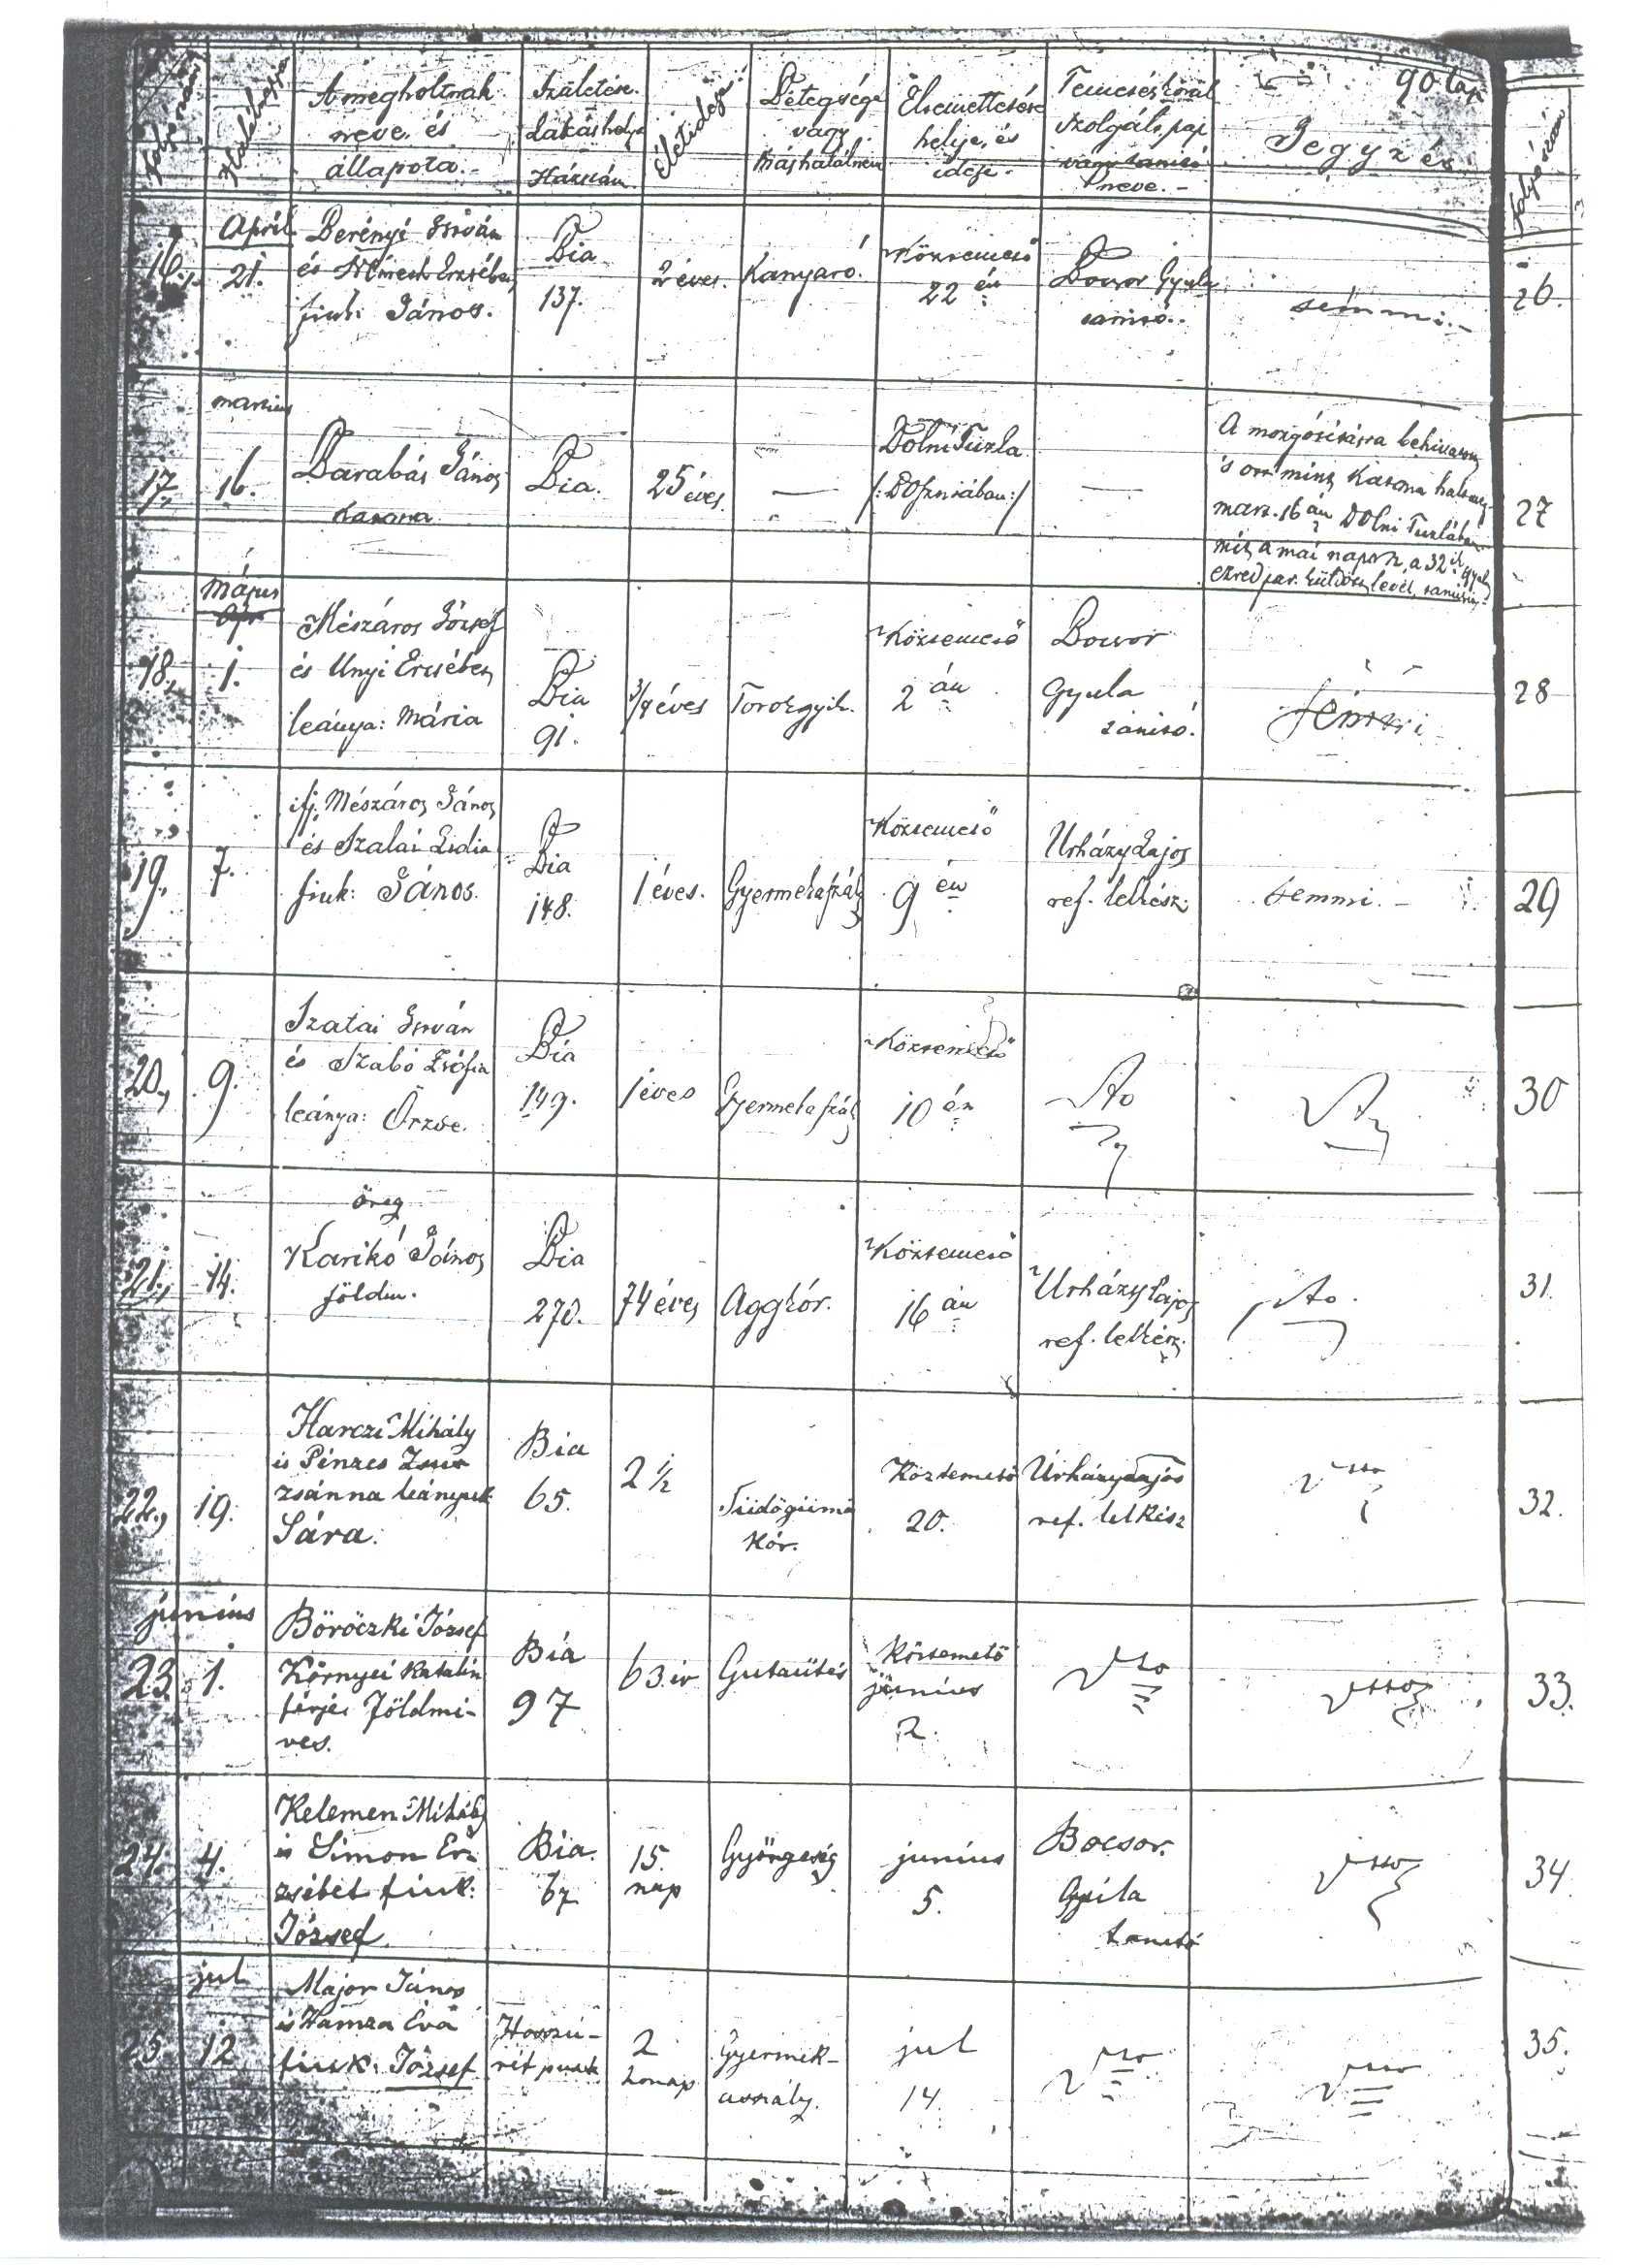 90 lap
Folyó szám
Halálnapja
A megholtnak
neve, és
állapota.-
Születése.
Lakás helye
Házszám.
Életideje
Betegsége
vagy
más halálnem
Eltemettetése
helye, és
ideje.-
Temetéskörül
szolgáló pap
vagy tanító
neve.-
Jegyzés
Folyó szám
16.,
April
21.
Berényi István
és Németh Erzsébet
fiuk: János.
Bia
137.
2 éves.
Kanyaró.
Köztemető
22 én
Bocsor Gyula
tanító.
semmi.-
26.
17.,
martius
16.
Barabás János
katona.
Bia.
25 éves.
—
Dolni Tuzla
/: Boszniában :/
—
A mozgósításra behivatott
's ott mint katona halt meg
mart. 16 án Dolni Tuzlában
mit a mai napon, a 32 ik gyal.
ezred par. küldött levél, tanúsít.
27
18.,
május
Apr
1.
Mészáros József
és Unyi Erzsébet
leánya: Mária
Bia
91.
3/4 éves
Torokgyik.
Köztemető
2 án
Bocsor
Gyula
tanító.
semmi
28
19.,
7.
ifj. Mészáros János
és Szalai Lidia
fiuk: János.
Bia
148.
1 éves.
Gyermekaszály
Köztemető
9 én
Urházy Lajos
ref. lelkész.
semmi. -
29
20.,
9.
Szatai István
és Szabó Zsófia
leánya: Örzse.
Bia
149.
1 éves
Gyermekaszály
Köztemető
10 én
30
21.,
14.
öreg
Karikó János
földm.
Bia
270.
74 éves
Aggkór.
Köztemető
16 án
Urházy Lajos
ref. lelkész.
31.
22.,
19.
Harczi Mihály
és Pénzes Zsu
zsánna leányuk
Sára.
Bia
65.
2 1/2
Tüdőgümő
kór.
Köztemető
20.
Urházy Lajos
ref. lelkész
32.
junius
23.
1.
Böröczki József
Környei Katalin
férje. Földmi-
ves.
Bia
97
63 év
Gutaütés
Köztemető
junius
2.
33.
24.
4.
Kelemen Mihály
és Simon Er-
zsébet fiuk:
József.
Bia.
67
15.
nap
Gyöngeség
junius
5.
Bocsor.
Gyula
tanító
34
jul
25.
12
Major János
és Hamza Éva
fiuk: József
Hosszú-
rét puszta
2
honap
Gyermek-
asszály.
jul
14.
35.